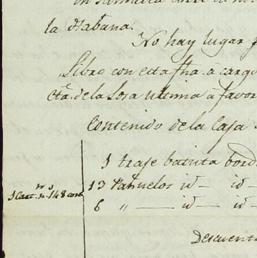 la Habana.
No hay lugar
Libro con esta fha. a cargo
cta. de la Sosa ultima a favor
Contenido de la Caja
1 traje batista bord
12 Pañuelos id — id —
6 " — id — id
Descuent